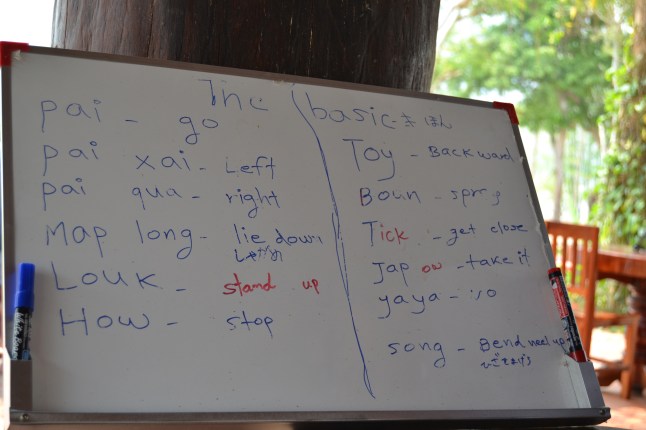 The basic きほん
pai - go
pai xai - Left
pai qua - right
Map long - lie down
Louk - stand up
How - stop
Toy - Backward
Boun - spray
Tick - get close
Jap on - take it
yaya - no
song - Bend neel up